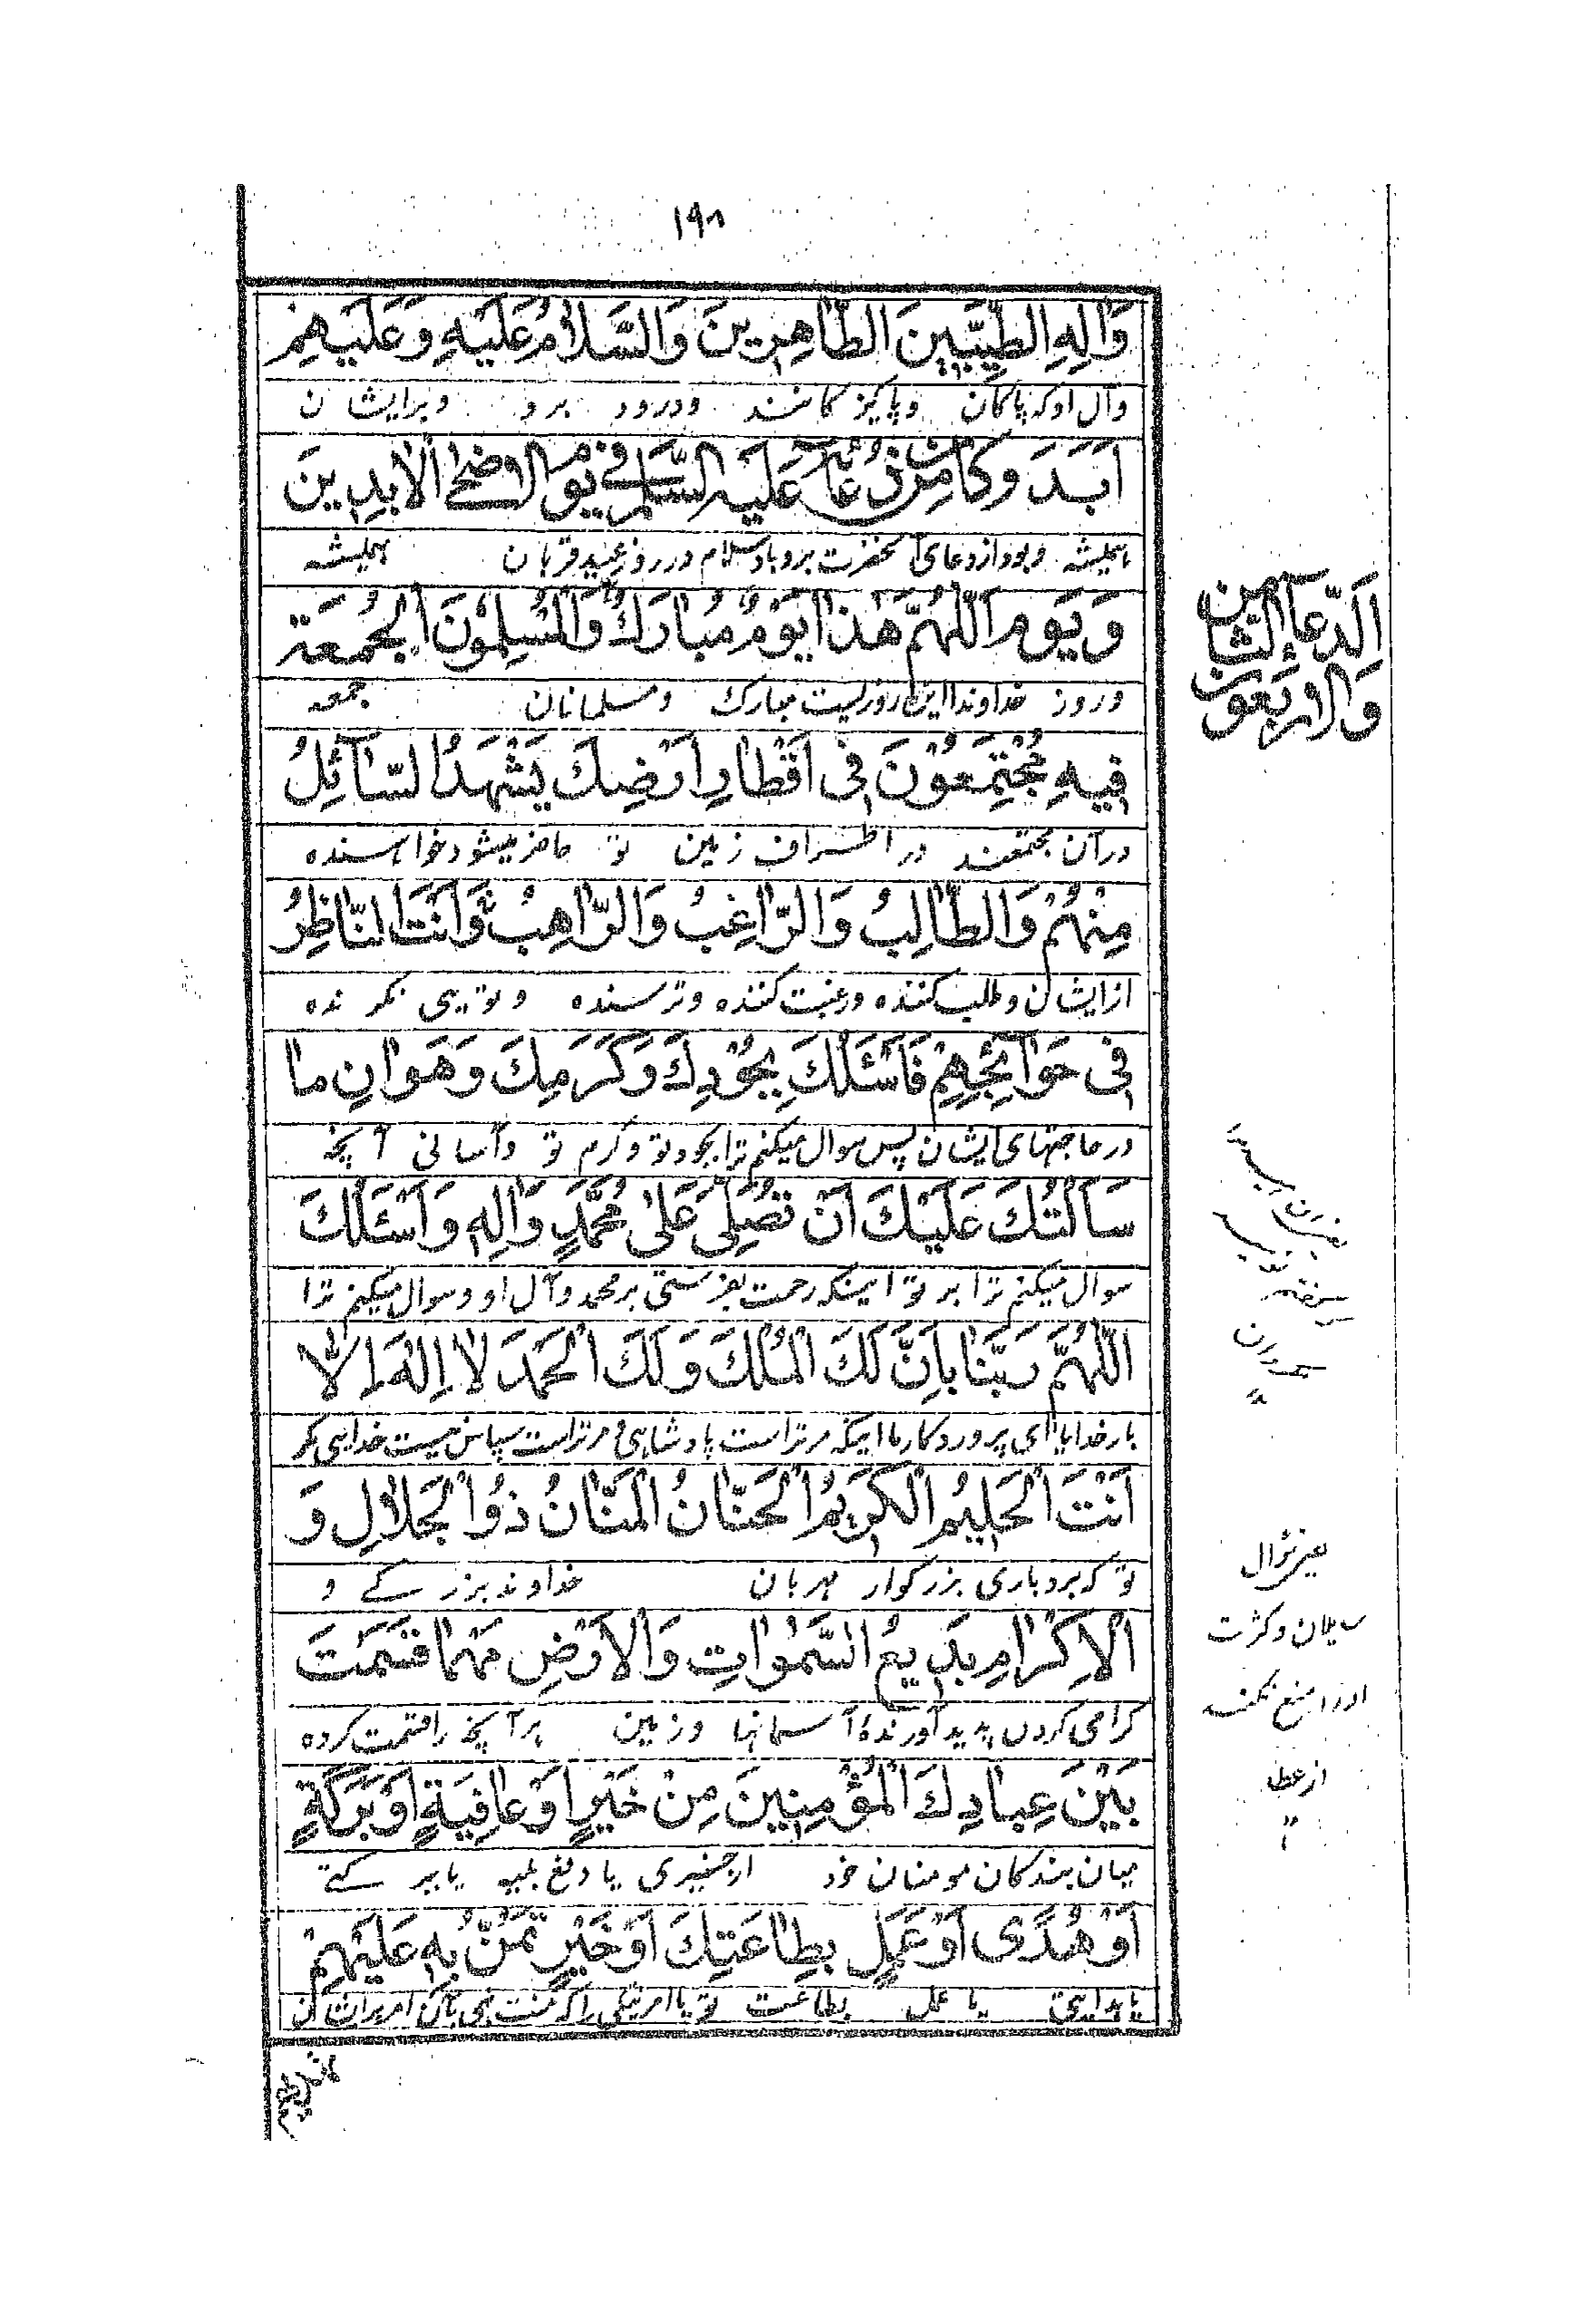 ۱۹۸
وَاٰلِهِ الطَّيِّبِينَ الطَّاهِرِينَ وَالسَّلَامُ عَلَيْهِ وَعَلَيْهِمْ
وآل او که پاکان وپاکیزکانند ودرود برو وبرایشان
اَبَدَ وَكَانَ مِنْ دُعَائِهِ عَلَيْهِ السَّلَامُ فِي يَوْمِ الْاَضْحٰى الْاٰبِدِينَ
همیشه وبود از دعای آنحضرت برو باد سلام در روز عید قربان همیشه
وَيَوْمِ اَللّٰهُمَّ هٰذَا يَوْمٌ مُبَارَكٌ وَالْمُسْلِمُونَ الْجُمُعَة
وروز خداوندا این روزیست مبارک ومسلمانان جمعه
اَلدُّعَاءُ الثَّامِنُ
وَالْاَرْبَعُونَ
فِيهِ مُجْتَمِعُونَ فِى اَقْطَارِ اَرْضِكَ يَشْهَدُ السَّآئِلُ
درآن مجتمعند در اطراف زمین تو حاضر میشود خواهنده
مِنْهُمْ وَالطَّالِبُ وَالرَّاغِبُ وَالرَّاهِبُ وَاَنْتَ النَّاظِرُ
ازایشان وطلب کننده ورغبت کننده وترسنده وتویی نکرنده
فِى حَوَآئِجِهِمْ فَاَسْئَلُكَ بِجُوْدِكَ وَكَرَمِكَ وَهَوَانِ مَا
درحاجتهای ایشان پس سوال میکنم ترا بجود تو وکرم تو وآسانی آنچه
سَاَلْتُكَ عَلَيْكَ اَنْ تُصَلِّىَ عَلٰى مُحَمَّدٍ وَاٰلِهِ وَاَسْئَلُكَ
سوال میکنم ترا بر تو اینکه رحمت بفرستی بر محمد وآل او وسوال میکنم ترا
اَللّٰهُمَّ رَبَّنَا بِاَنَّ لَكَ الْمُلْكَ وَلَكَ الْحَمْدَ لَا اِلٰهَ اِلَّا
بارخدایا ای پروردکار ما اینکه مرتراست پادشاهی ومرتراست سپاس نیست خدایی مکر
اَنْتَ الْحَلِيمُ الْكَرِيمُ الْحَنَّانُ الْمَنَّانُ ذُو الْجَلَالِ وَ
تو که بردباری بزرکوار مهربان خداوند بزرکے و
بغیر سؤال
سایلان وکثرت
اورا منع نکند
از عطا
الْاِكْرَامِ بَدِيعُ السَّمٰوَاتِ وَالْاَرْضِ مَهْمَا قَسَمْتَ
کرامی کردن پدید آورندۀ آسمانها وزمین هرآنچه را قسمت کرده
بَيْنَ عِبَادِكَ الْمُؤْمِنِينَ مِنْ خَيْرٍ اَوْ عَافِيَةٍ اَوْ بَرَكَةٍ
میان بندکان مومنان خود ازخیری یا دفع بلیه یا برکتے
اَوْ هُدًى اَوْ عَمَلٍ بِطَاعَتِكَ اَوْ خَيْرٍ تَمُنُّ بِهِ عَلَيْهِمْ
یا هدایتی یا عمل بطاعت تو یا امر نیکی را که منت نهی بآن امر برایشان